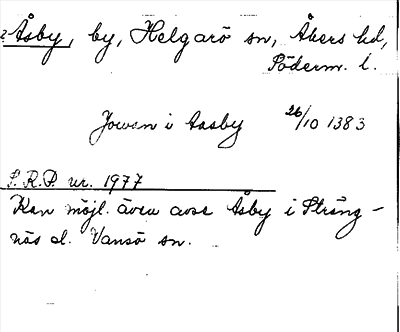 ? Åsby, by, Helgarö sn, Åkers hd,
Söderm. l.
Jowen i Aasby 26/10 1383
S.R.P. nr. 1977
Kan möjl. även avse Åsby i Sträng-
näs el. Vansö sn.